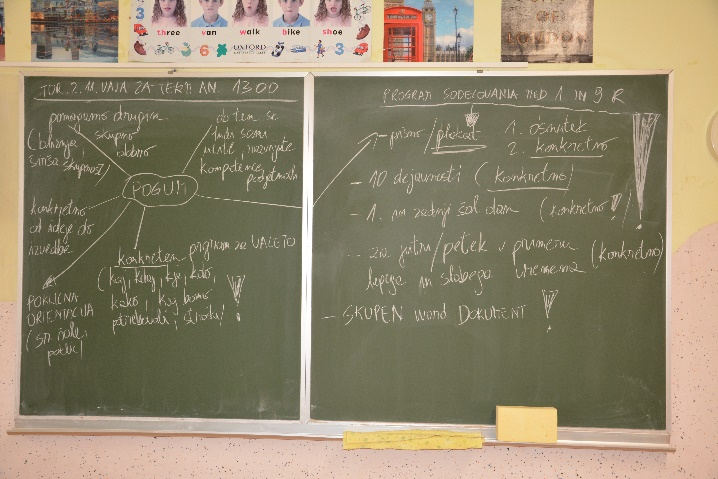 three van walk bike shoe
3 6 OXFORD 3
LONDON
TOR. 2. 11. VAJA ZA TEKM AN. 13.00
pomagamo drugim
(bližnja skupno
širša skupnost) dobro
ob tem se
tudi sami
učite, razvijate
kompetence
podjetnosti
POGUM
konkretno
od ideje do
izvedbe
konkreten program za VALETO
(kaj, kdaj, kje, kdo,
kako, kaj bomo
potrebovali, stroški)!
POKLICNA
ORIENTACIJA
(sr. šole,
poklici)
PROGRAM SODELOVANJA MED 1. IN 9. R
- pismo / plakat 1. osnutek
2. konkretno
- 10 dejavnosti (konkretno)
- 1. in zadnji šol. dan (konkretno!)
- za jutri/petek v primeru (konkretno)
lepega in slabega vremena
- SKUPEN word DOKUMENT !